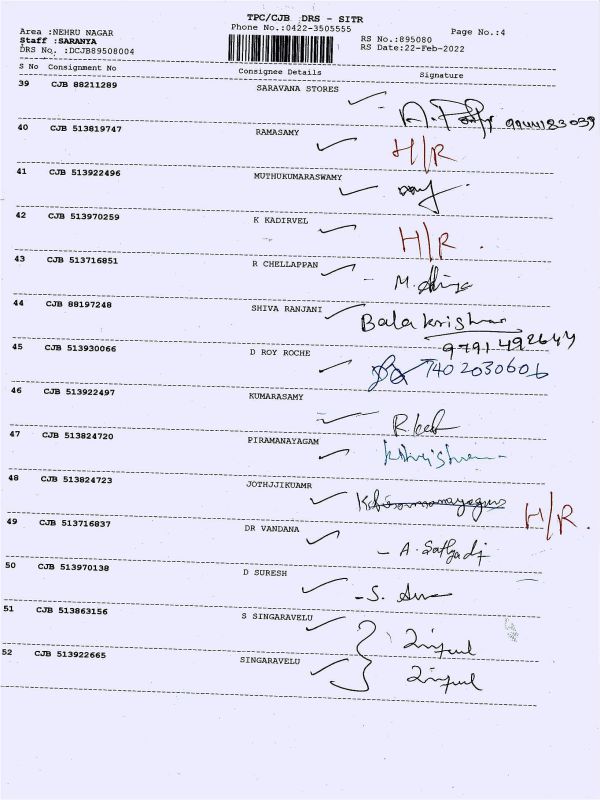 TPC/CJB DRS - SITR
Phone No.:0422-3505555
Page No.:4
Area :NEHRU NAGAR
Staff :SARANYA
DRS No. :DCJB89508004
RS No.:895080
RS Date:22-Feb-2022
S No Consignment No Consignee Details Signature
39 CJB 88211289 SARAVANA STORES
40 CJB 513819747 RAMASAMY H/R
41 CJB 513922496 MUTHUKUMARASWAMY
42 CJB 513970259 K KADIRVEL H/R.
43 CJB 513716851 R CHELLAPPAN
44 CJB 88197248 SHIVA RANJANI Balakrishnan
9791492647
45 CJB 513930066 D ROY ROCHE 7402030606
46 CJB 513922497 KUMARASAMY
47 CJB 513824720 PIRAMANAYAGAM
48 CJB 513824723 JOTHJJIKUAMR H/R.
49 CJB 513716837 DR VANDANA
50 CJB 513970138 D SURESH
51 CJB 513863156 S SINGARAVELU
52 CJB 513922665 SINGARAVELU